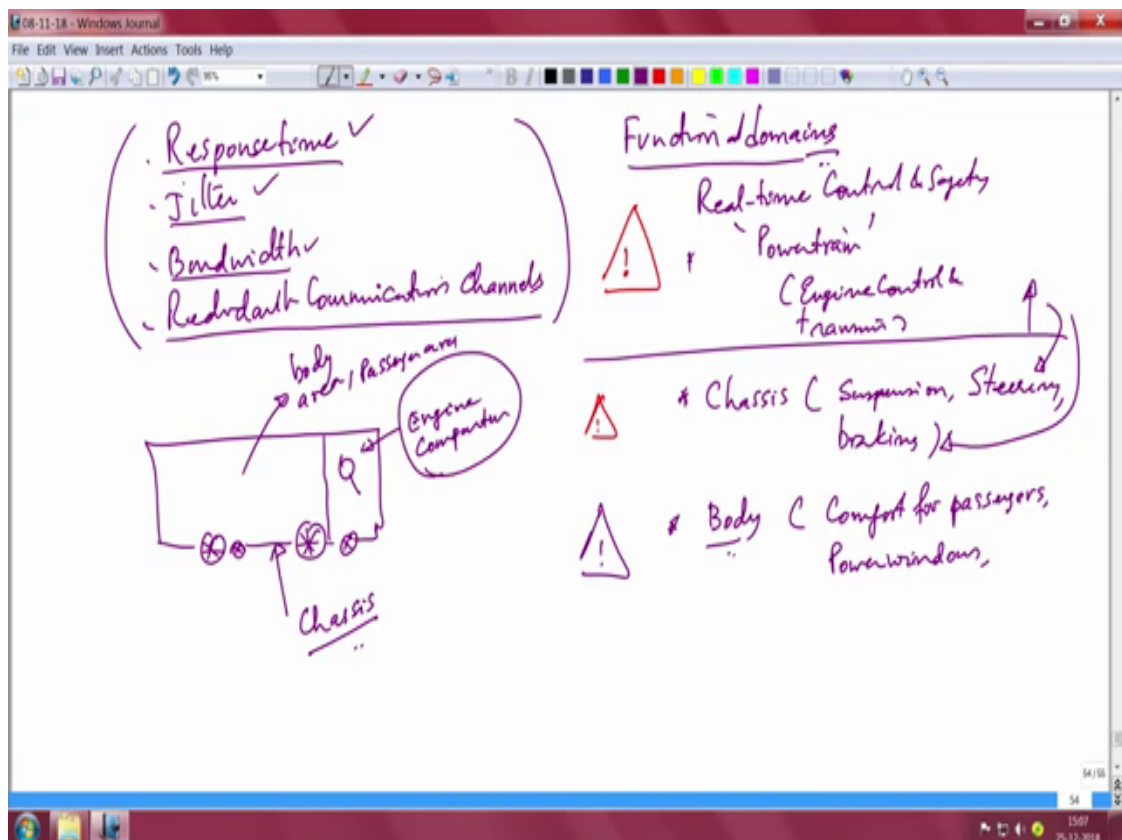 08-11-18 - Windows Journal
File Edit View Insert Actions Tools Help
96%
B I
. Response time ✓
. Jitter ✓
. Bandwidth ✓
. Redudault Communications Channels
body
area, Passenger area
Engine
Compartun
Chassis
Functional domains
Real-time Control & Safety
"Powertrain"
(Engine Control &
transmis)
* Chassis ( Suspension, Steering,
braking )
* Body ( Comfort for passengers,
Powerwindows,
!
!
!
54 / 55
54
15:07
25-12-2018